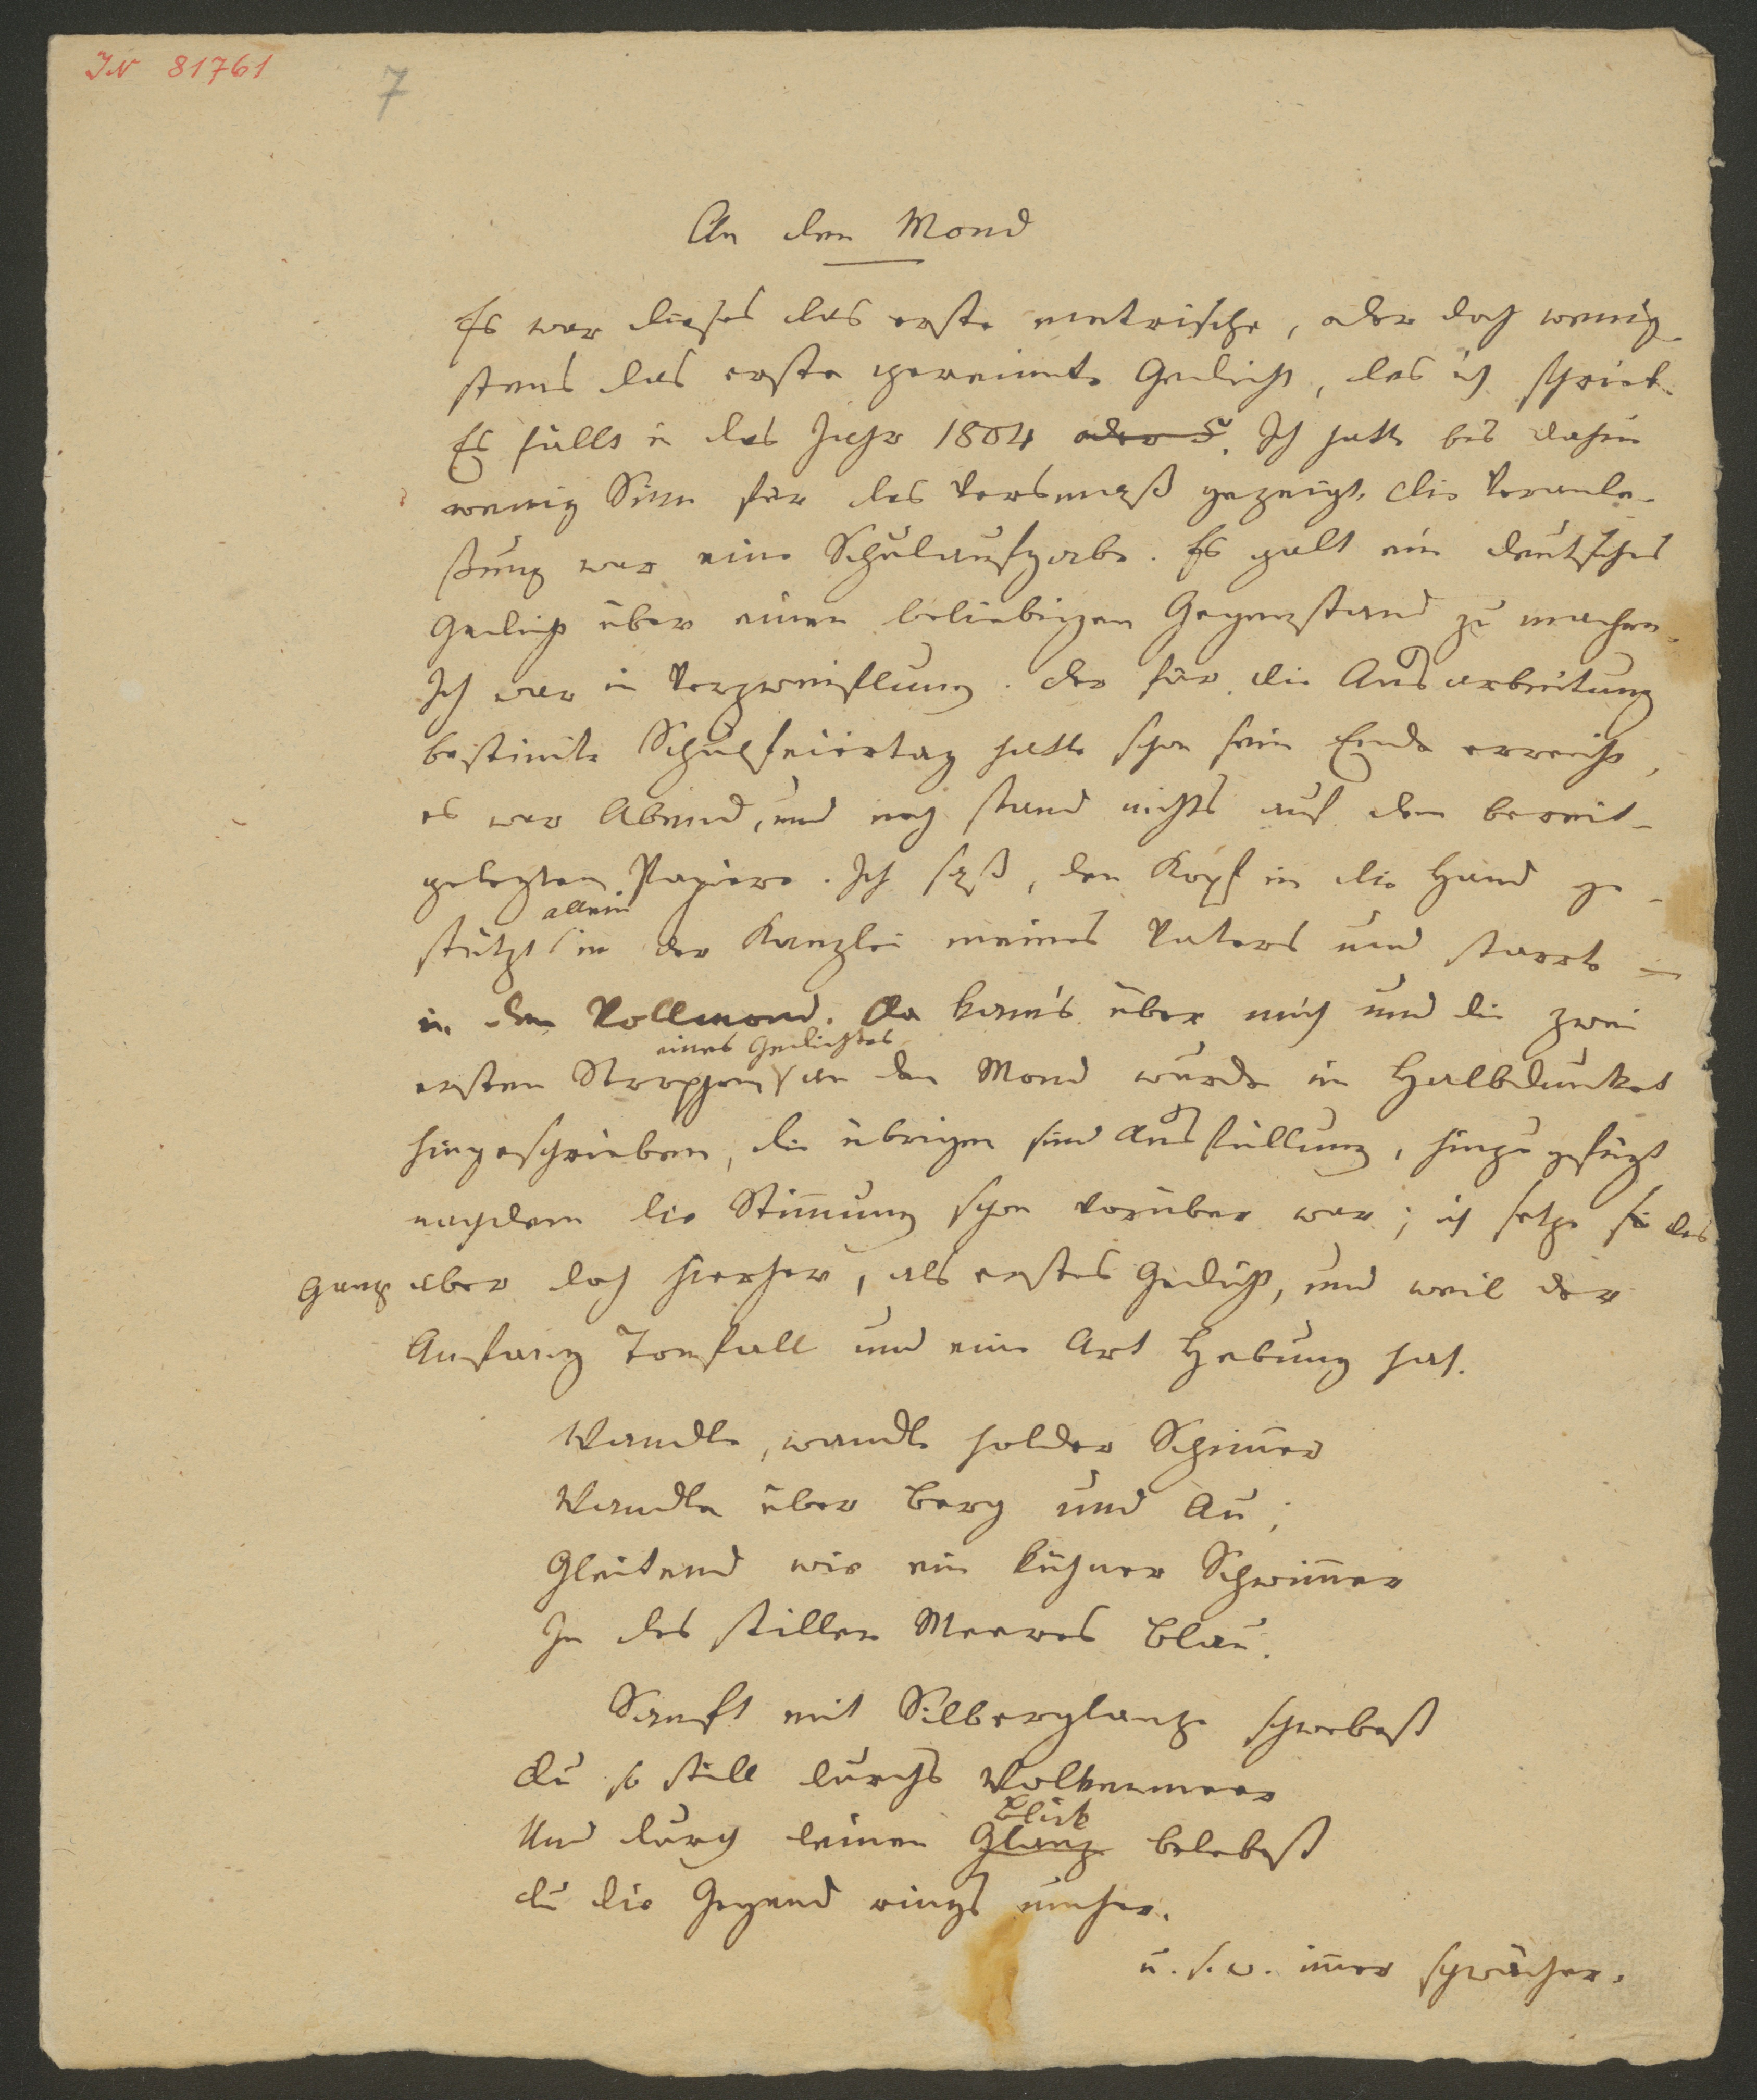 IN 81761
7
An den Mond
Es war dieses das erste metrische, oder doch wenig-
stens das erste gereimte Gedicht, das ich schrieb.
Es fällt in das Jahr 1804 oder 5. Ich hatte bis dahin
wenig Sinn für das Versmaß gezeigt. Die Veranla-
ßung war eine Schulaufgabe. Es galt ein deutsches
Gedicht über einen beliebigen Gegenstand zu machen.
Ich war in Verzweiflung. Der für die Ausarbeitung
bestim̄te Schulfeiertag hatte schon sein Ende erreicht,
es war Abend, und noch stand nichts auf dem bereit-
gelegten Papiere. Ich saß, den Kopf in die Hand ge-
allein
stützt in der Kanzlei meines Vaters und starrte
in den Vollmond. Da kam's über mich und die zwei
eines Gedichtes
ersten Strophen an den Mond wurde im Halbdunkel
hingeschrieben, die übrigen sind Ausfüllung, hinzugefügt
nachdem die Stim̄ung schon vorüber war; ich setze sie das
Ganze aber doch hierher, als erstes Gedicht, und weil der
Anfang Tonfall und eine Art Hebung hat.
Wandle, wandle holder Schim̄er
Wandle über Berg und Au;
Gleitend wie ein kühner Schwim̄er
In des stillen Meeres Blau.
Sanft mit Silberglanze schwebest
Du so still durchs Wolkenmeer
Blick
Und durch deinen Glanz belebest
du die Gegend rings umher.
u. s. w. im̄er schwächer.